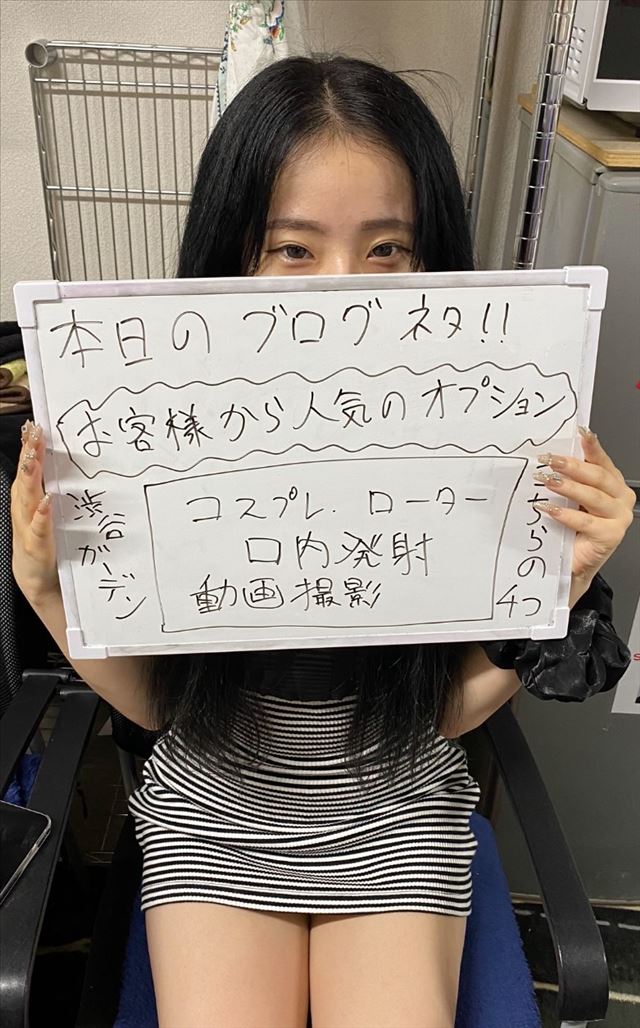 本日のブログネタ!!
お客様から人気のオプション
こちらの4つ
コスプレ. ローター
口内発射
動画撮影
渋谷ガーデン